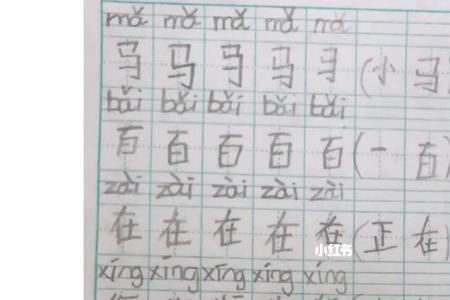 mǎ mǎ mǎ mǎ mǎ
马 马 马 马 马 (小 马)
bǎi bǎi bǎi bǎi bǎi
百 百 百 百 百 (一 百)
zài zài zài zài zài
在 在 在 在 在 (正 在)
小红书
xíng xíng xíng xíng xíng